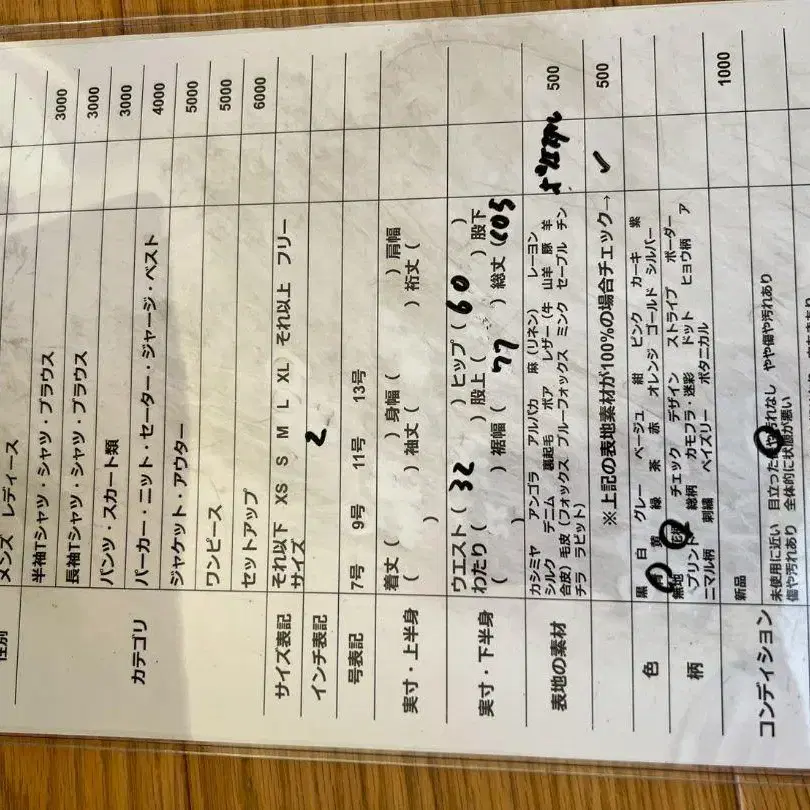 性別 メンズ レディース
カテゴリ
半袖Tシャツ・シャツ・ブラウス 3000
長袖Tシャツ・シャツ・ブラウス 3000
パンツ・スカート類 3000
パーカー・ニット・セーター・ジャージ・ベスト 4000
ジャケット・アウター 5000
ワンピース 5000
セットアップ 6000
サイズ表記 それ以下 XS S M L XL それ以上 フリー
サイズ 2
インチ表記
号表記 7号 9号 11号 13号
実寸・上半身 着丈 ( ) 身幅 ( ) 肩幅
( ) 袖丈 ( ) 裄丈 (
実寸・下半身 ウエスト ( 32 ) ヒップ ( 60 )
わたり ( ) 股上 ( ) 股下
( ) 裾幅 ( 77 ) 総丈 ( 105
表地の素材 カシミヤ アンゴラ アルパカ 麻 (リネン) レーヨン 500
シルク デニム 裏起毛 ボア レザー (牛 山羊 豚 羊
合皮) 毛皮 (フォックス ブルーフォックス ミンク セーブル チン
チラ ラビット)
※上記の表地素材が100%の場合チェック→ ✓ 500
色 黒 白 グレー ベージュ 紺 ピンク カーキ 紫
緑 茶 赤 オレンジ ゴールド シルバー
柄 無地 花柄 チェック デザイン ストライプ ボーダー
プリント 総柄 カモフラ・迷彩 ドット ヒョウ柄 ア
ニマル柄 刺繍 ペイズリー ボタニカル
コンディション 新品 1000
未使用に近い 目立った 汚れなし やや傷や汚れあり
傷や汚れあり 全体的に状態が悪い